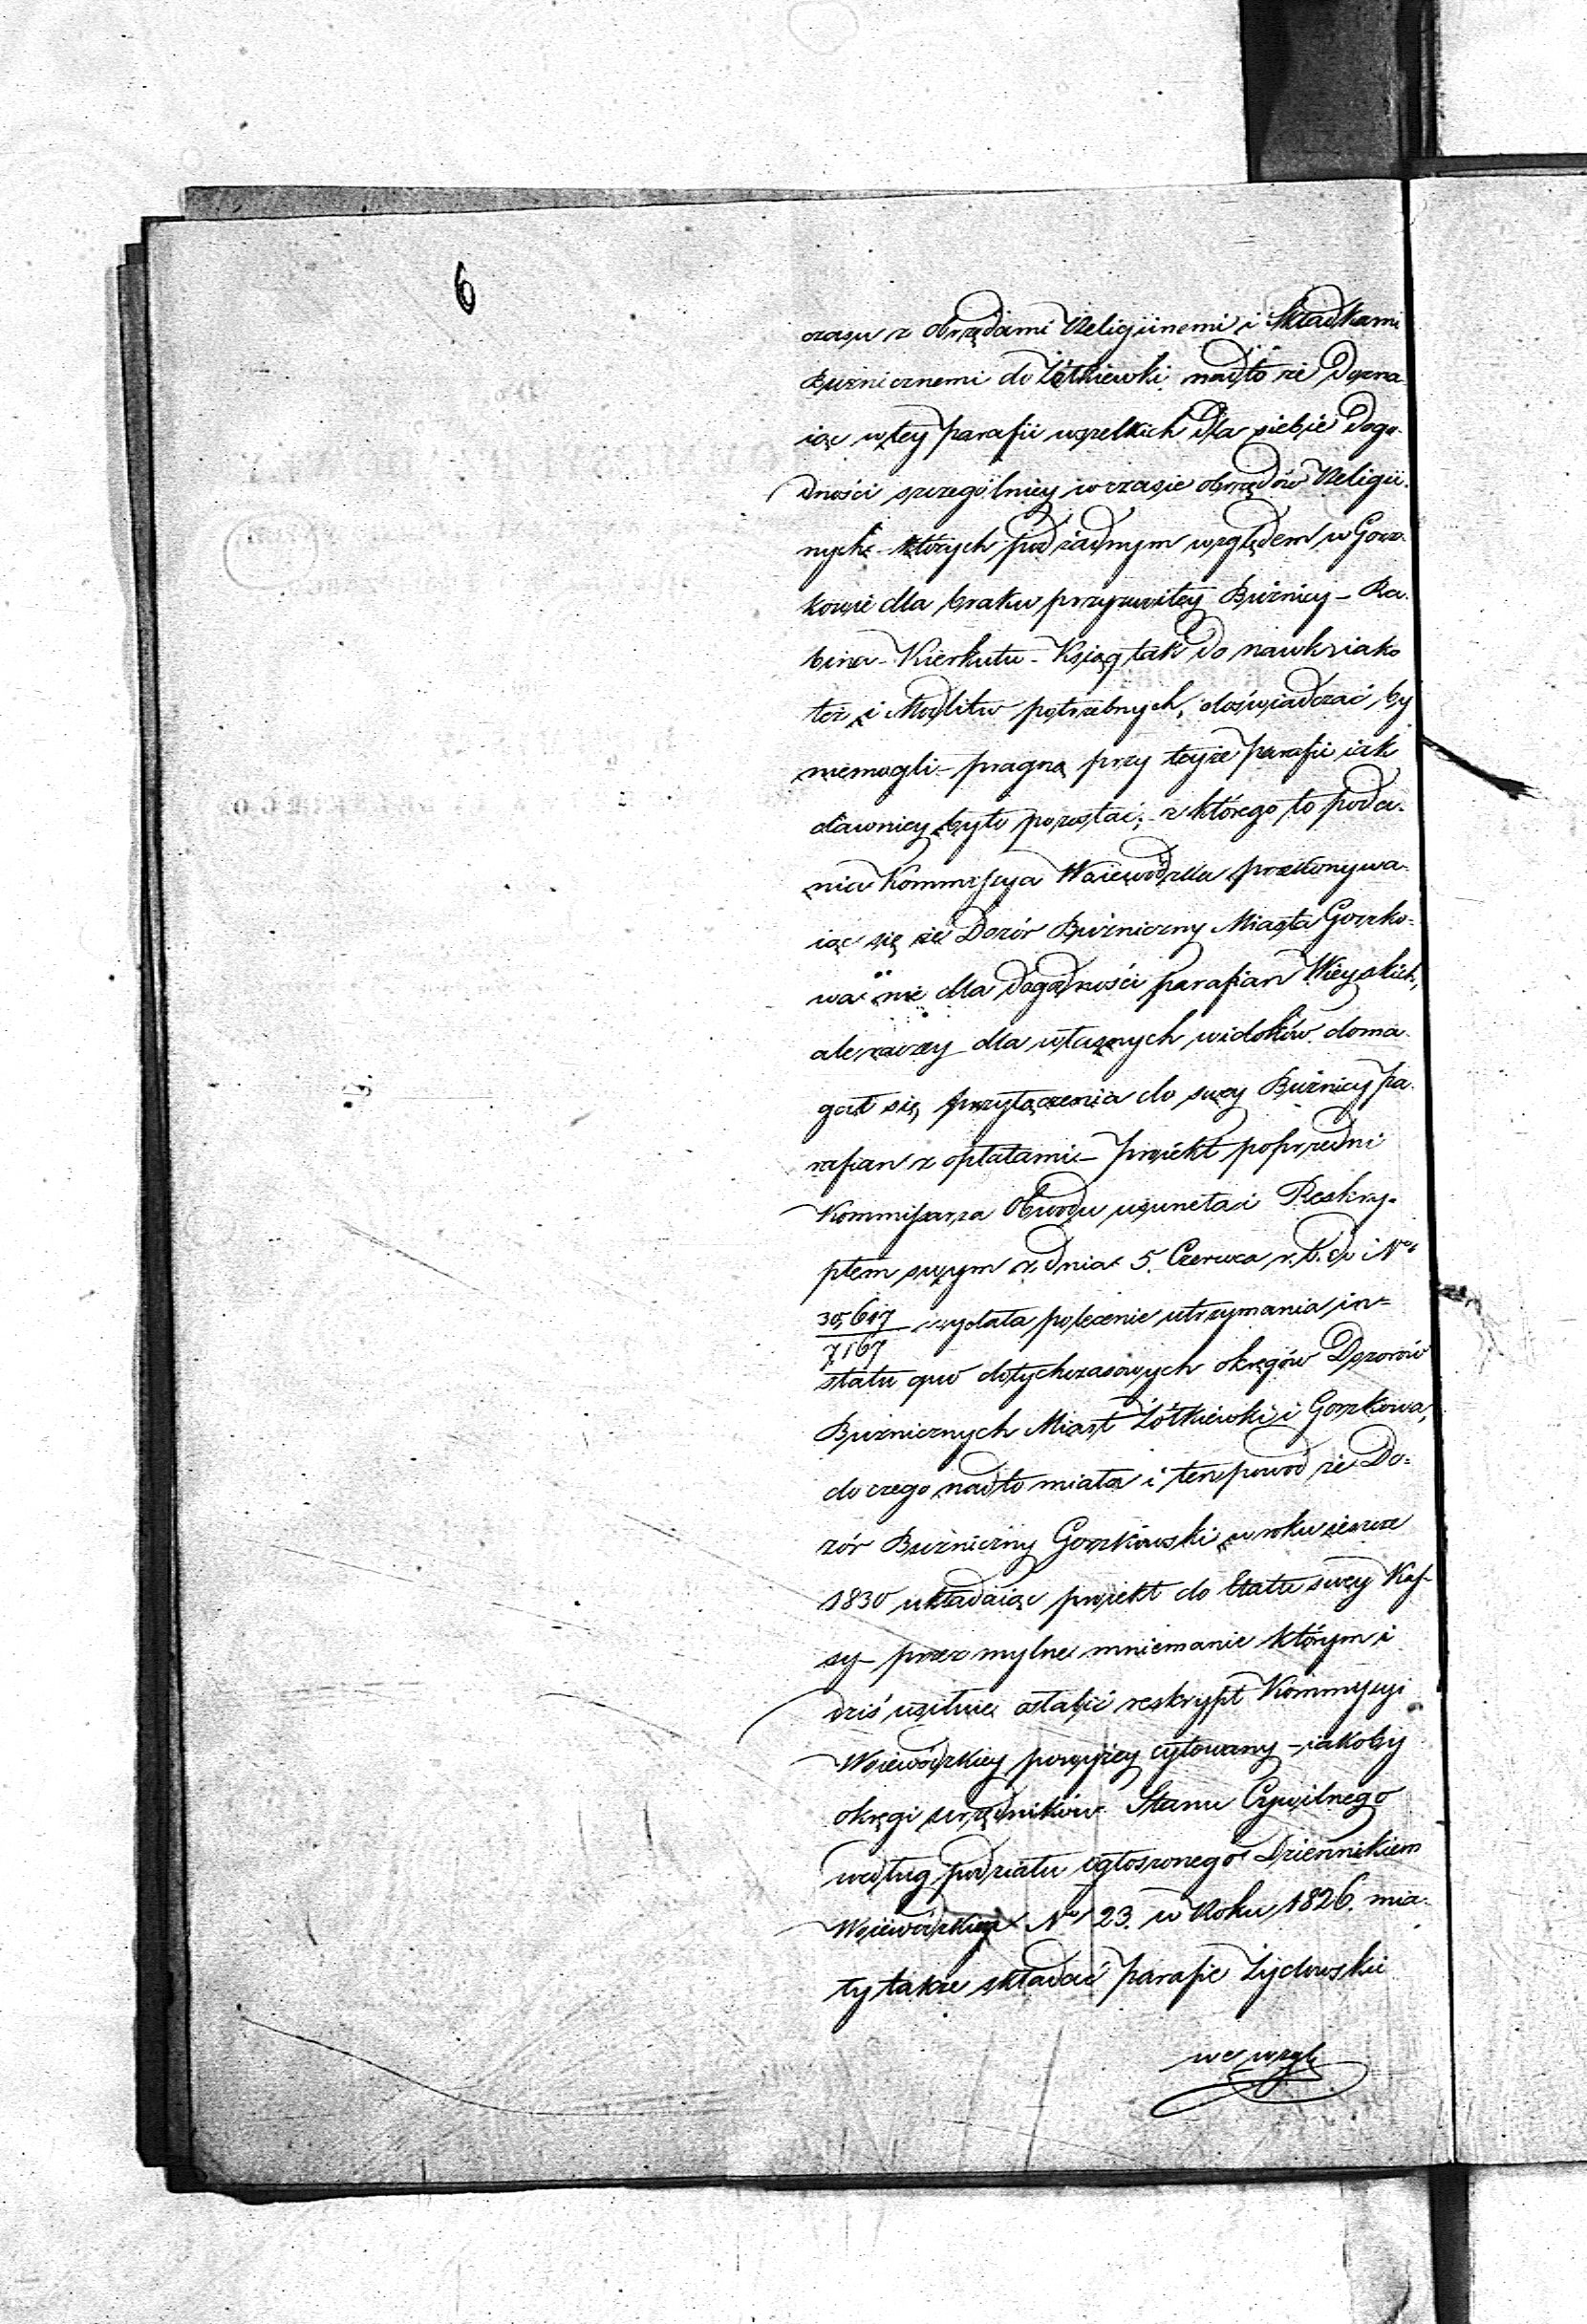 6
czasu z obrzędami Religiinemi i Składkami
Bużnicznemi do Żółkiewki nadto że dozna-
iąc w tey parafii wszelkich dla siebie dogo-
dności szczególniey w czasie obrzędów Religii-
nych – których pod żadnym względem w Gorz-
kowie dla braku przyzwoitey Bużnicy – Ra-
bina – Kierkutu – Ksiąg tak do nauk iako
też i Modlitw potrzebnych, doświadczać by
niemogli – pragną przy teyże parafii iak
dawniey było pozostać; – z którego to poda-
nia Kommissya Woiewódzka przekonywa-
iąc się że Dozór Bużniczny Miasta Gorzko-
wa nie dla dogodności parafian Wieyskich,
ale raczey dla własnych widoków doma-
gał się przyłączenia do swey Bużnicy pa-
rafian z opłatami – projekt poprzedni
Kommissarza Obwodu usunęła i Reskry-
ptem swym z dnia 5. Czerwca r. b. do No
30,617
7167 wydała polecenie utrzymania in=
statu quo dotychczasowych okręgów Dozorów
Bużnicznych Miast Żółkiewki i Gorzkowa,
do czego nadto miała i ten powód że Do=
zór Bużniczny Gorzkowski w roku ieszcze
1830 układaiąc projekt do Etatu swey Kas-
sy – przez mylne mniemanie którym i
dziś usiłuie osłabić reskrypt Kommissyi
Woiewódzkiey powyżey cytowany – iakoby
okręgi urzędników Stanu Cywilnego
według podziału ogłoszonego Dziennikiem
Woiewódzkim No 23. w Roku 1826. mia-
ły także składać parafie Żydowskie
we wzglę